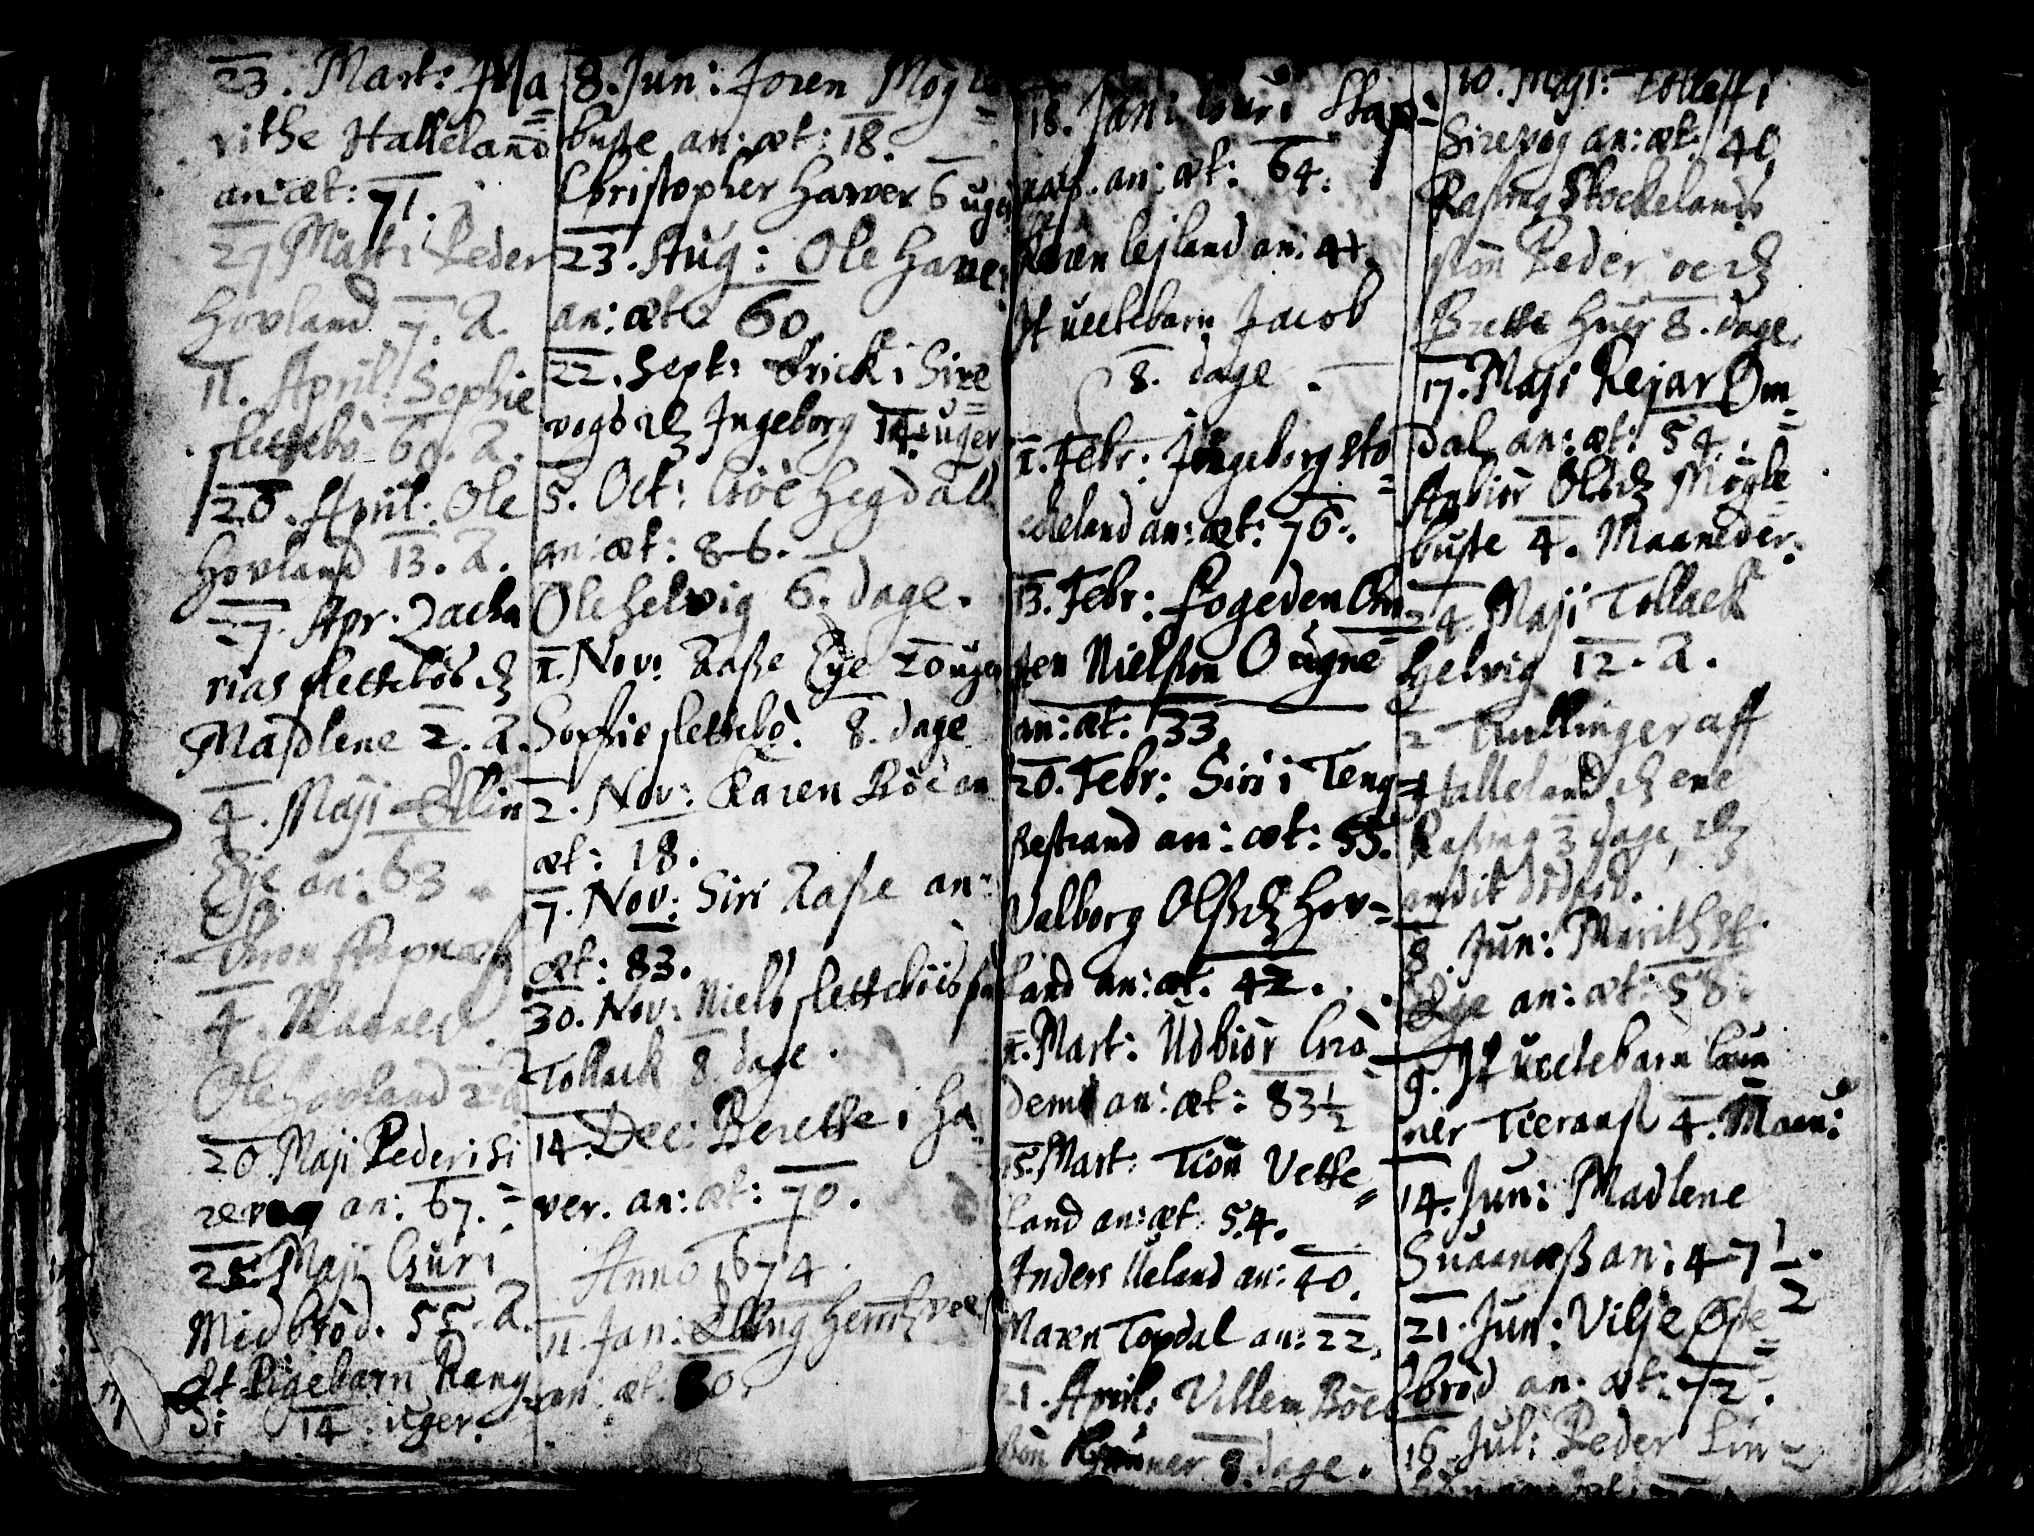 23. Mart: Ma=
rithe Halleland
an: æt: 71.
27 Mart: Peder
Hovland 7. A.
11. April: Sophie
slettebò 60. A.
20. April: Ole
Hovland 13. A.
27. Apr. Zacha
rias slettebòs
Madlene 2. A.
4. Maji Ellin
Eye an: 63
Skapnæs
4. Maaned
Ole Hovland 2 A
20 Maji Peder i Si
revog an: 67.
25. Maji Guri
Midbròd. 55. A.
Et Pigebarn Rang
di 14. uger.
8. Jun: Joren Mòg
buste an: æt: 18.
Christopher Haver 6 uger
23. Aug: Ole Haver
an: æt: 60.
22. Sept: Erick i Sire
vogs Ingeborg 14. uger
5. Oct: Groe Hegdall
an: æt: 86.
Ole Helvig 6. dage.
1. Nov: Aase Eye 20 uger
Sophie slettebò. 8. dage
2. Nov: Karen Bòe an
æt: 18.
7. Nov: Siri Aase an:
æt: 83.
30. Nov: Niels slettebòes sòn
Tollack 8. dage.
14. Dec: Berethe i Ha=
ver. an: æt: 70.
Anno 1674.
11. Jan:
an: æt: 80.
18. Jan: Guri Skap=
næs. an: æt: 64.
Karen Lejland an: 41.
It uectebarn Jacob
8. dage.
1. Febr: Ingeborg Sto=
ckeland an: æt: 76.
13. Febr: Fogeden Chri
sten Nielssøn Ougne
an: æt: 33.
20. Febr: Siri i Teng=
restrand an: æt: 55.
Valborg Olss Hov=
land an: æt. 42.
1. Mart: Udbiòr Grò=
dem an: æt: 83 1/2
15. Mart: Tion Vethe=
land an: æt. 54.
Anders Ueland an: 40.
Maren Topdal an: 22.
21. April: Villem Bòes
sòn Gunner 8. dage.
10. Maji: Tolleff i
Sirevog an: æt: 40
Rasmg Stockelands
sòn Peder oc
Brethe huer 8. dage.
17. Maji Rejar Om=
dal an: æt: 54.
Asbiòr Ols Mògle=
buste 4. Maaneder.
24. Maji Tollack
Helvig 12. A.
2 Tuillinger aff
Halleland ene
Rasmg 3 dage,
andit dòdfòd.
8. Jun: Marith
Eye an: æt: 58.
9. It uectebarn Gun
ner Tieranss 4. Maan:
14. Jun: Madlene
Suaanæss an: 47 1/2.
21. Jun: Vilje Òste=
bròd an: æt: 72.
16 Jul: Peder Lin=